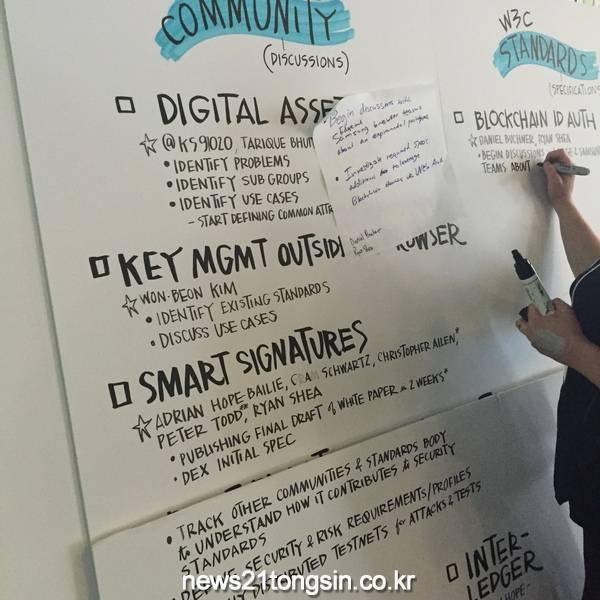 COMMUNITY
(DISCUSSIONS)
DIGITAL
@KS91020, TARIQUE
• IDENTIFY PROBLEMS
• IDENTIFY SUB GROUPS
• IDENTIFY USE CASES
- START DEFINING COMMON
Begin discussions with
Samsung browser teams
about an experimental
• Investigate required spec
additions to
Blockchain
Daniel Buchner
Ryan Shea
KEY MGMT
WON-BEON KIM
• IDENTIFY EXISTING STANDARDS
• DISCUSS USE CASES
SMART SIGNATURES
ADRIAN HOPE-BAILIE, SCHWARTZ, CHRISTOPHER ALLEN,*
PETER TODD,** RYAN SHEA
• PUBLISHING FINAL DRAFT of WHITE PAPER in 2 WEEKS*
• DEX INITIAL SPEC
• TRACK OTHER COMMUNITIES & STANDARDS BODY
to UNDERSTAND HOW IT CONTRIBUTES to SECURITY
STANDARDS
SECURITY & RISK REQUIREMENTS/PROFILES
DISTRIBUTED TESTNETS for ATTACKS & TESTS
INTER-
LEDGER
HOPE-
W3C
STANDARDS
BLOCKCHAIN ID AUTH
DANIEL BUCHNER, RYAN SHEA
• BEGIN DISCUSSIONS & SAMSUNG
TEAMS ABOUT
news21tongsin.co.kr